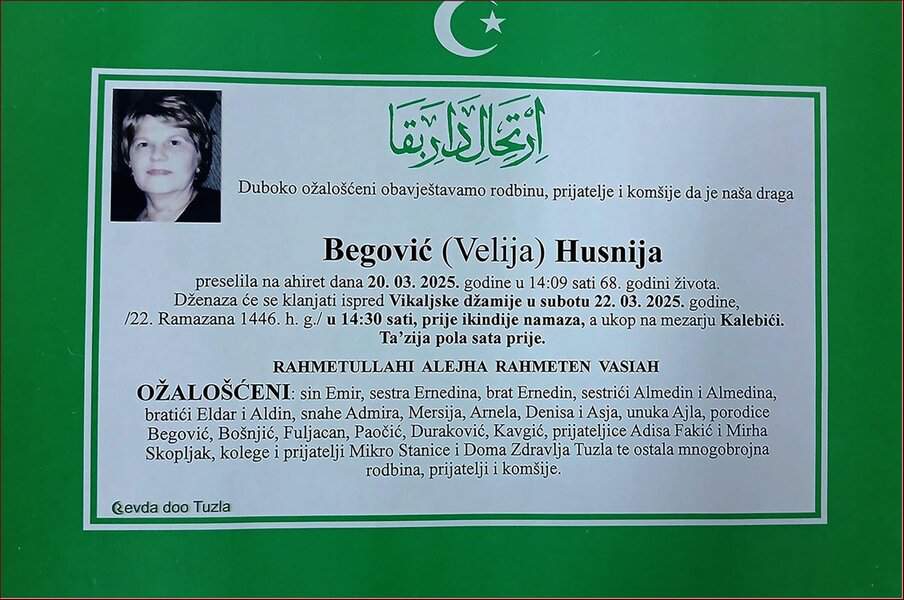 اِرْتِحَالِ دَارِ بَقَا
Duboko ožalošćeni obavještavamo rodbinu, prijatelje i komšije da je naša draga
Begović (Velija) Husnija
preselila na ahiret dana 20. 03. 2025. godine u 14:09 sati 68. godini života.
Dženaza će se klanjati ispred Vikaljske džamije u subotu 22. 03. 2025. godine,
/22. Ramazana 1446. h. g./ u 14:30 sati, prije ikindije namaza, a ukop na mezarju Kalebići.
Ta’zija pola sata prije.
RAHMETULLAHI ALEJHA RAHMETEN VASIAH
OŽALOŠĆENI: sin Emir, sestra Ernedina, brat Ernedin, sestrići Almedin i Almedina,
bratići Eldar i Aldin, snahe Admira, Mersija, Arnela, Denisa i Asja, unuka Ajla, porodice
Begović, Bošnjić, Fuljacan, Paočić, Duraković, Kavgić, prijateljice Adisa Fakić i Mirha
Skopljak, kolege i prijatelji Mikro Stanice i Doma Zdravlja Tuzla te ostala mnogobrojna
rodbina, prijatelji i komšije.
Ćevda doo Tuzla